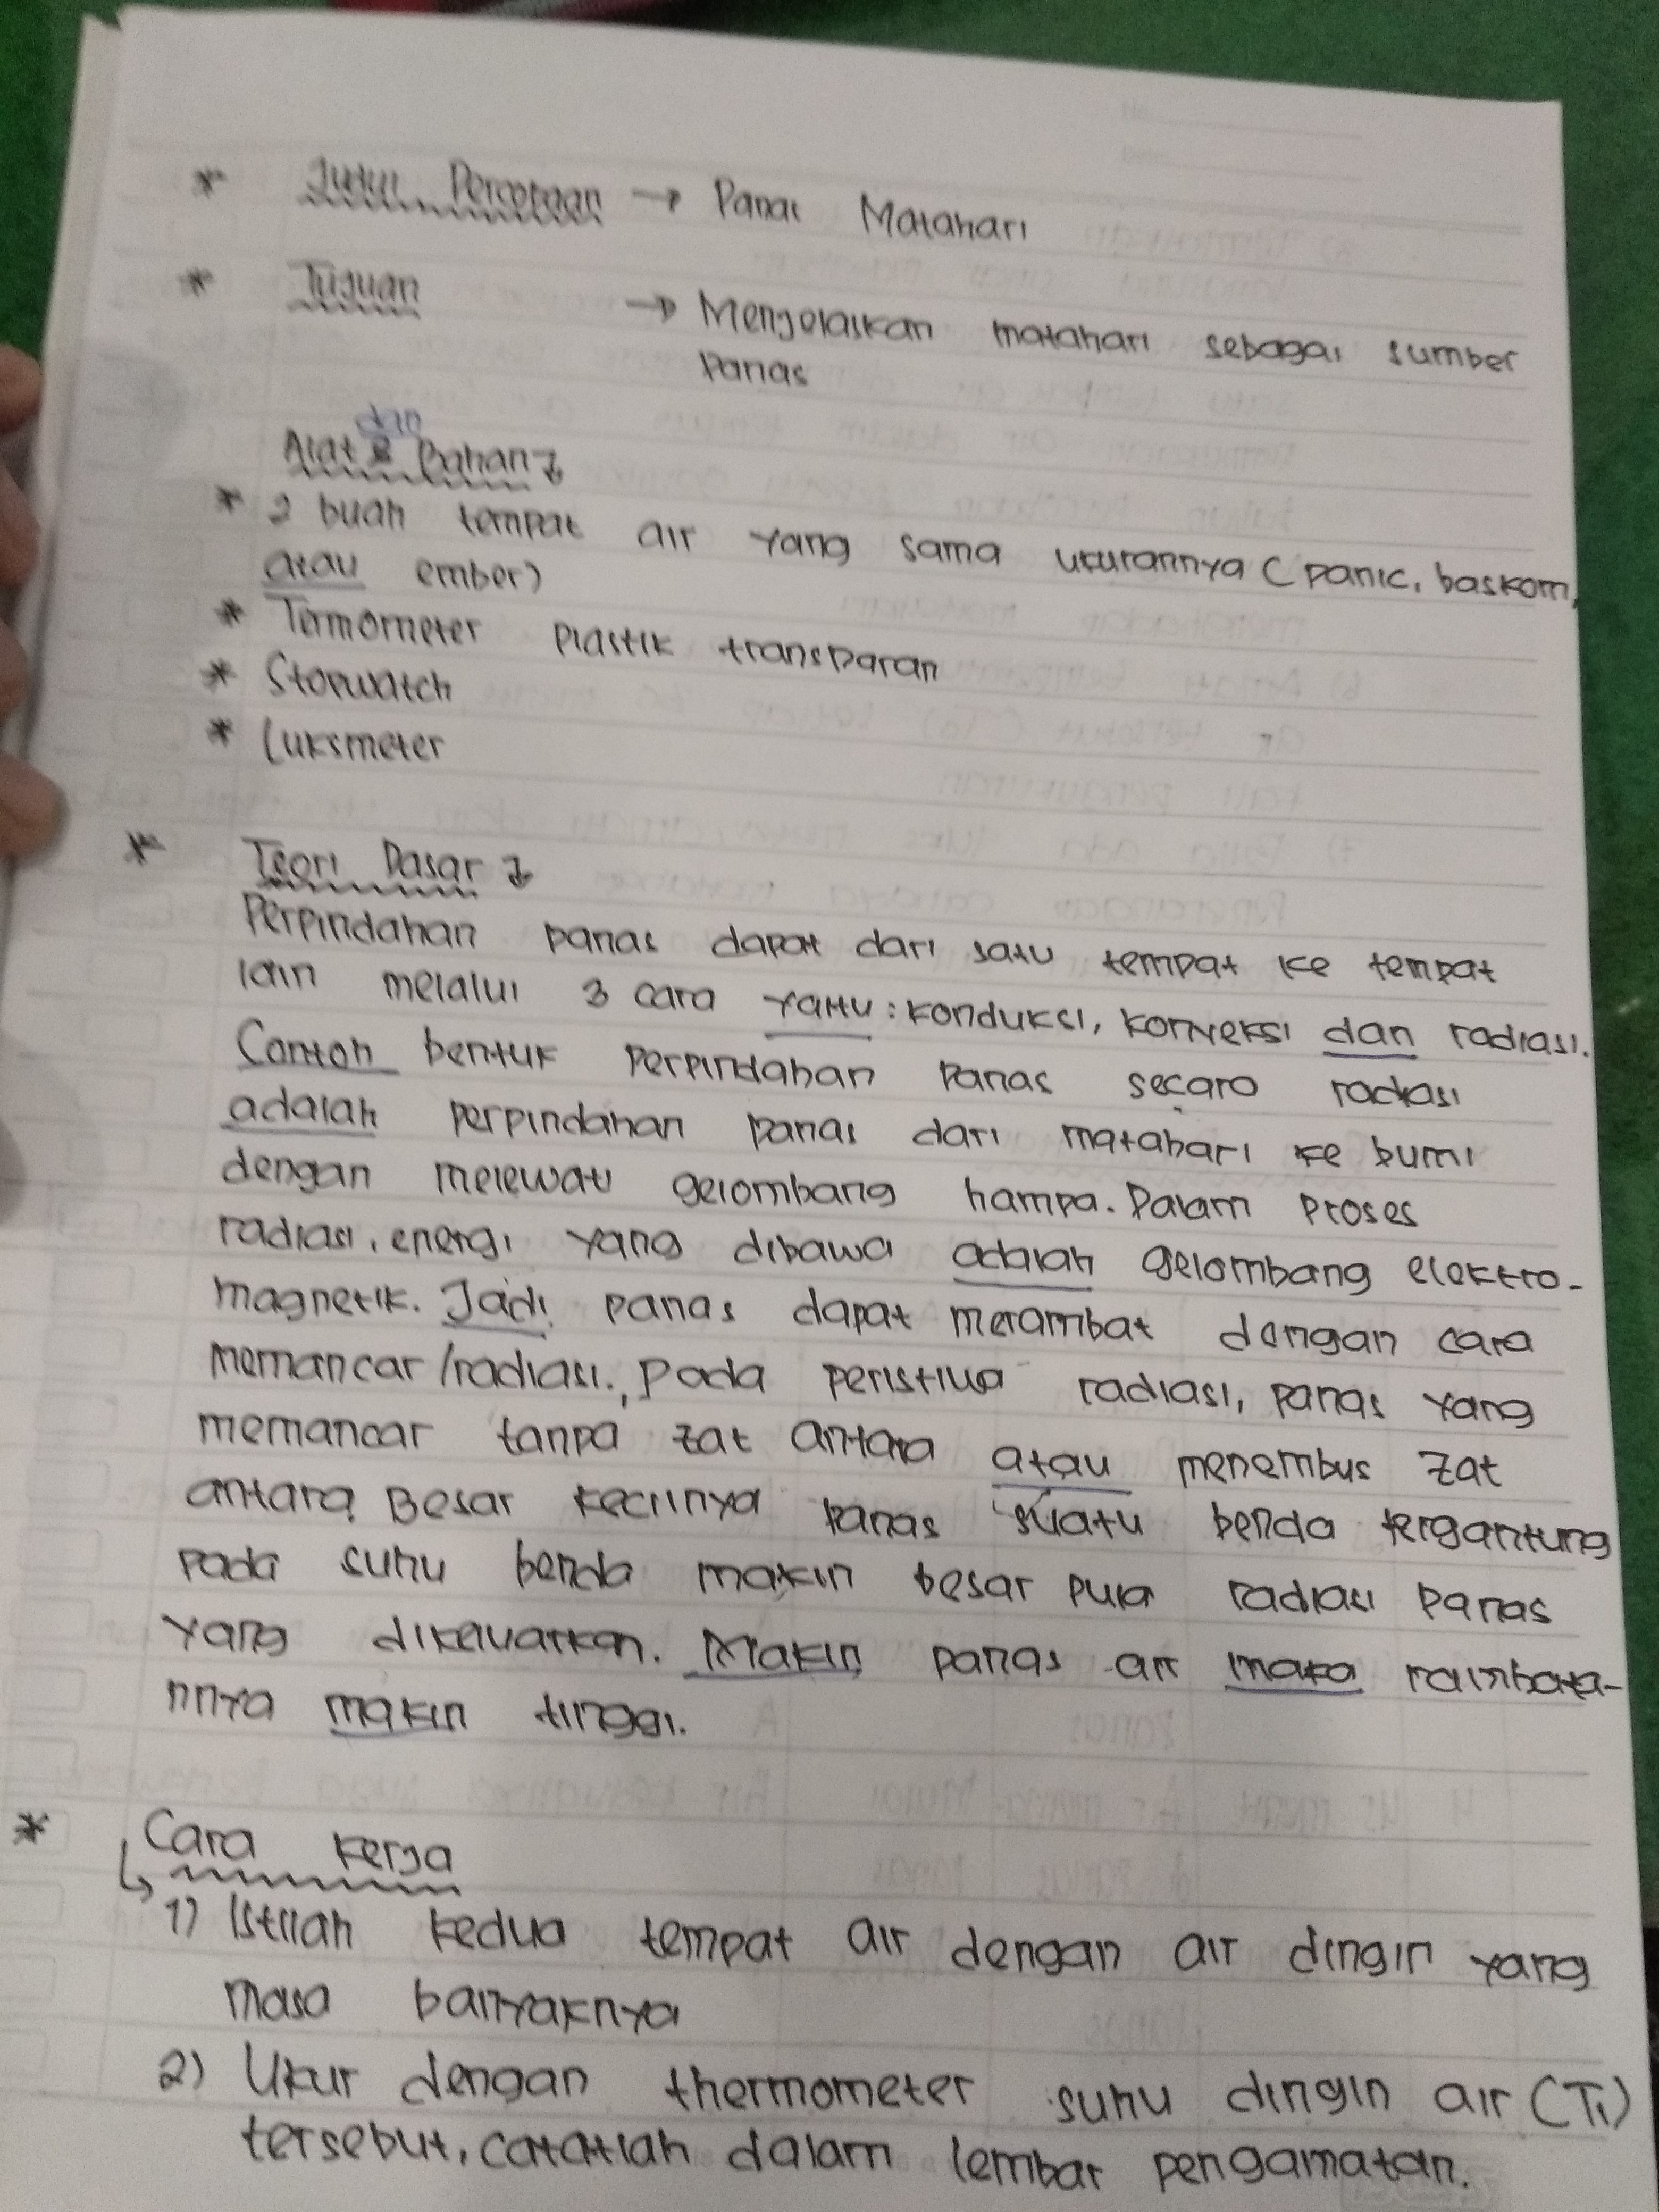 * Judul Percobaan → Panas Matahari
* Tujuan → Menjelaskan matahari sebagai sumber
panas
dan
Alat & Bahan
* 2 buah tempat air yang sama ukurannya (panic, baskom,
atau ember)
* Termometer plastik transparan
* Stopwatch
* Luksmeter
* Teori Dasar
Perpindahan panas dapat dari satu tempat ke tempat
lain melalui 3 cara yaitu : konduksi, konveksi dan radiasi.
Contoh bentuk perpindahan panas secara radiasi
adalah perpindahan panas dari matahari ke bumi
dengan melewati gelombang hampa. Dalam proses
radiasi, energi yang dibawa adalah gelombang elektro-
magnetik. Jadi panas dapat merambat dengan cara
memancar/radiasi., pada peristiwa radiasi, panas yang
memancar tanpa zat antara atau menembus zat
antara, Besar kecilnya panas suatu benda tergantung
pada suhu benda makin besar pula radiasi panas
yang dikeluarkan. Makin panas air maka rambata-
nnya makin tinggi.
* Cara kerja
1) Istilah kedua tempat air dengan air dingin yang
masa banyaknya
2) Ukur dengan thermometer suhu dingin air (T1)
tersebut, catatlah dalam lembar pengamatan.